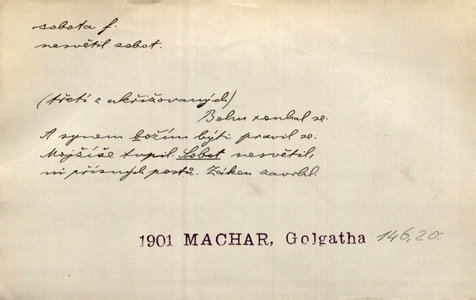 sobota f.
nesvětil sobot.
(třetí z ukřižovaných)
Bohu rouhal se.
A synem božím býti pravil se.
Mojžíše tupil. Sobot nesvětil,
ni přísných postů. Zákon zavrhl.
1901 MACHAR, Golgatha 146,20.